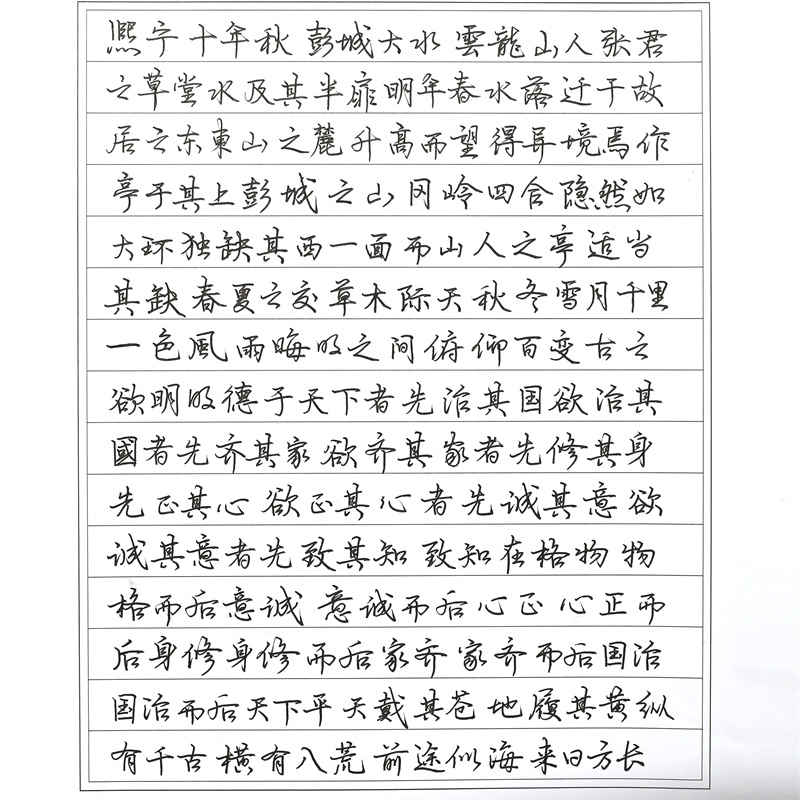 熙宁十年秋彭城大水雲龍山人张君
之草堂水及其半扉明年春水落迁于故
居之东東山之麓升高而望得异境焉作
亭于其上彭城之山冈岭四合隐然如
大环独缺其西一面而山人之亭适当
其缺春夏之交草木际天秋冬雪月千里
一色風雨晦明之间俯仰百变古之
欲明明德于天下者先治其国欲治其
國者先齐其家欲齐其家者先修其身
先正其心欲正其心者先诚其意欲
诚其意者先致其知致知在格物物
格而后意诚意诚而后心正心正而
后身修身修而后家齐家齐而后国治
国治而后天下平天戴其苍地履其黄纵
有千古横有八荒前途似海来日方长